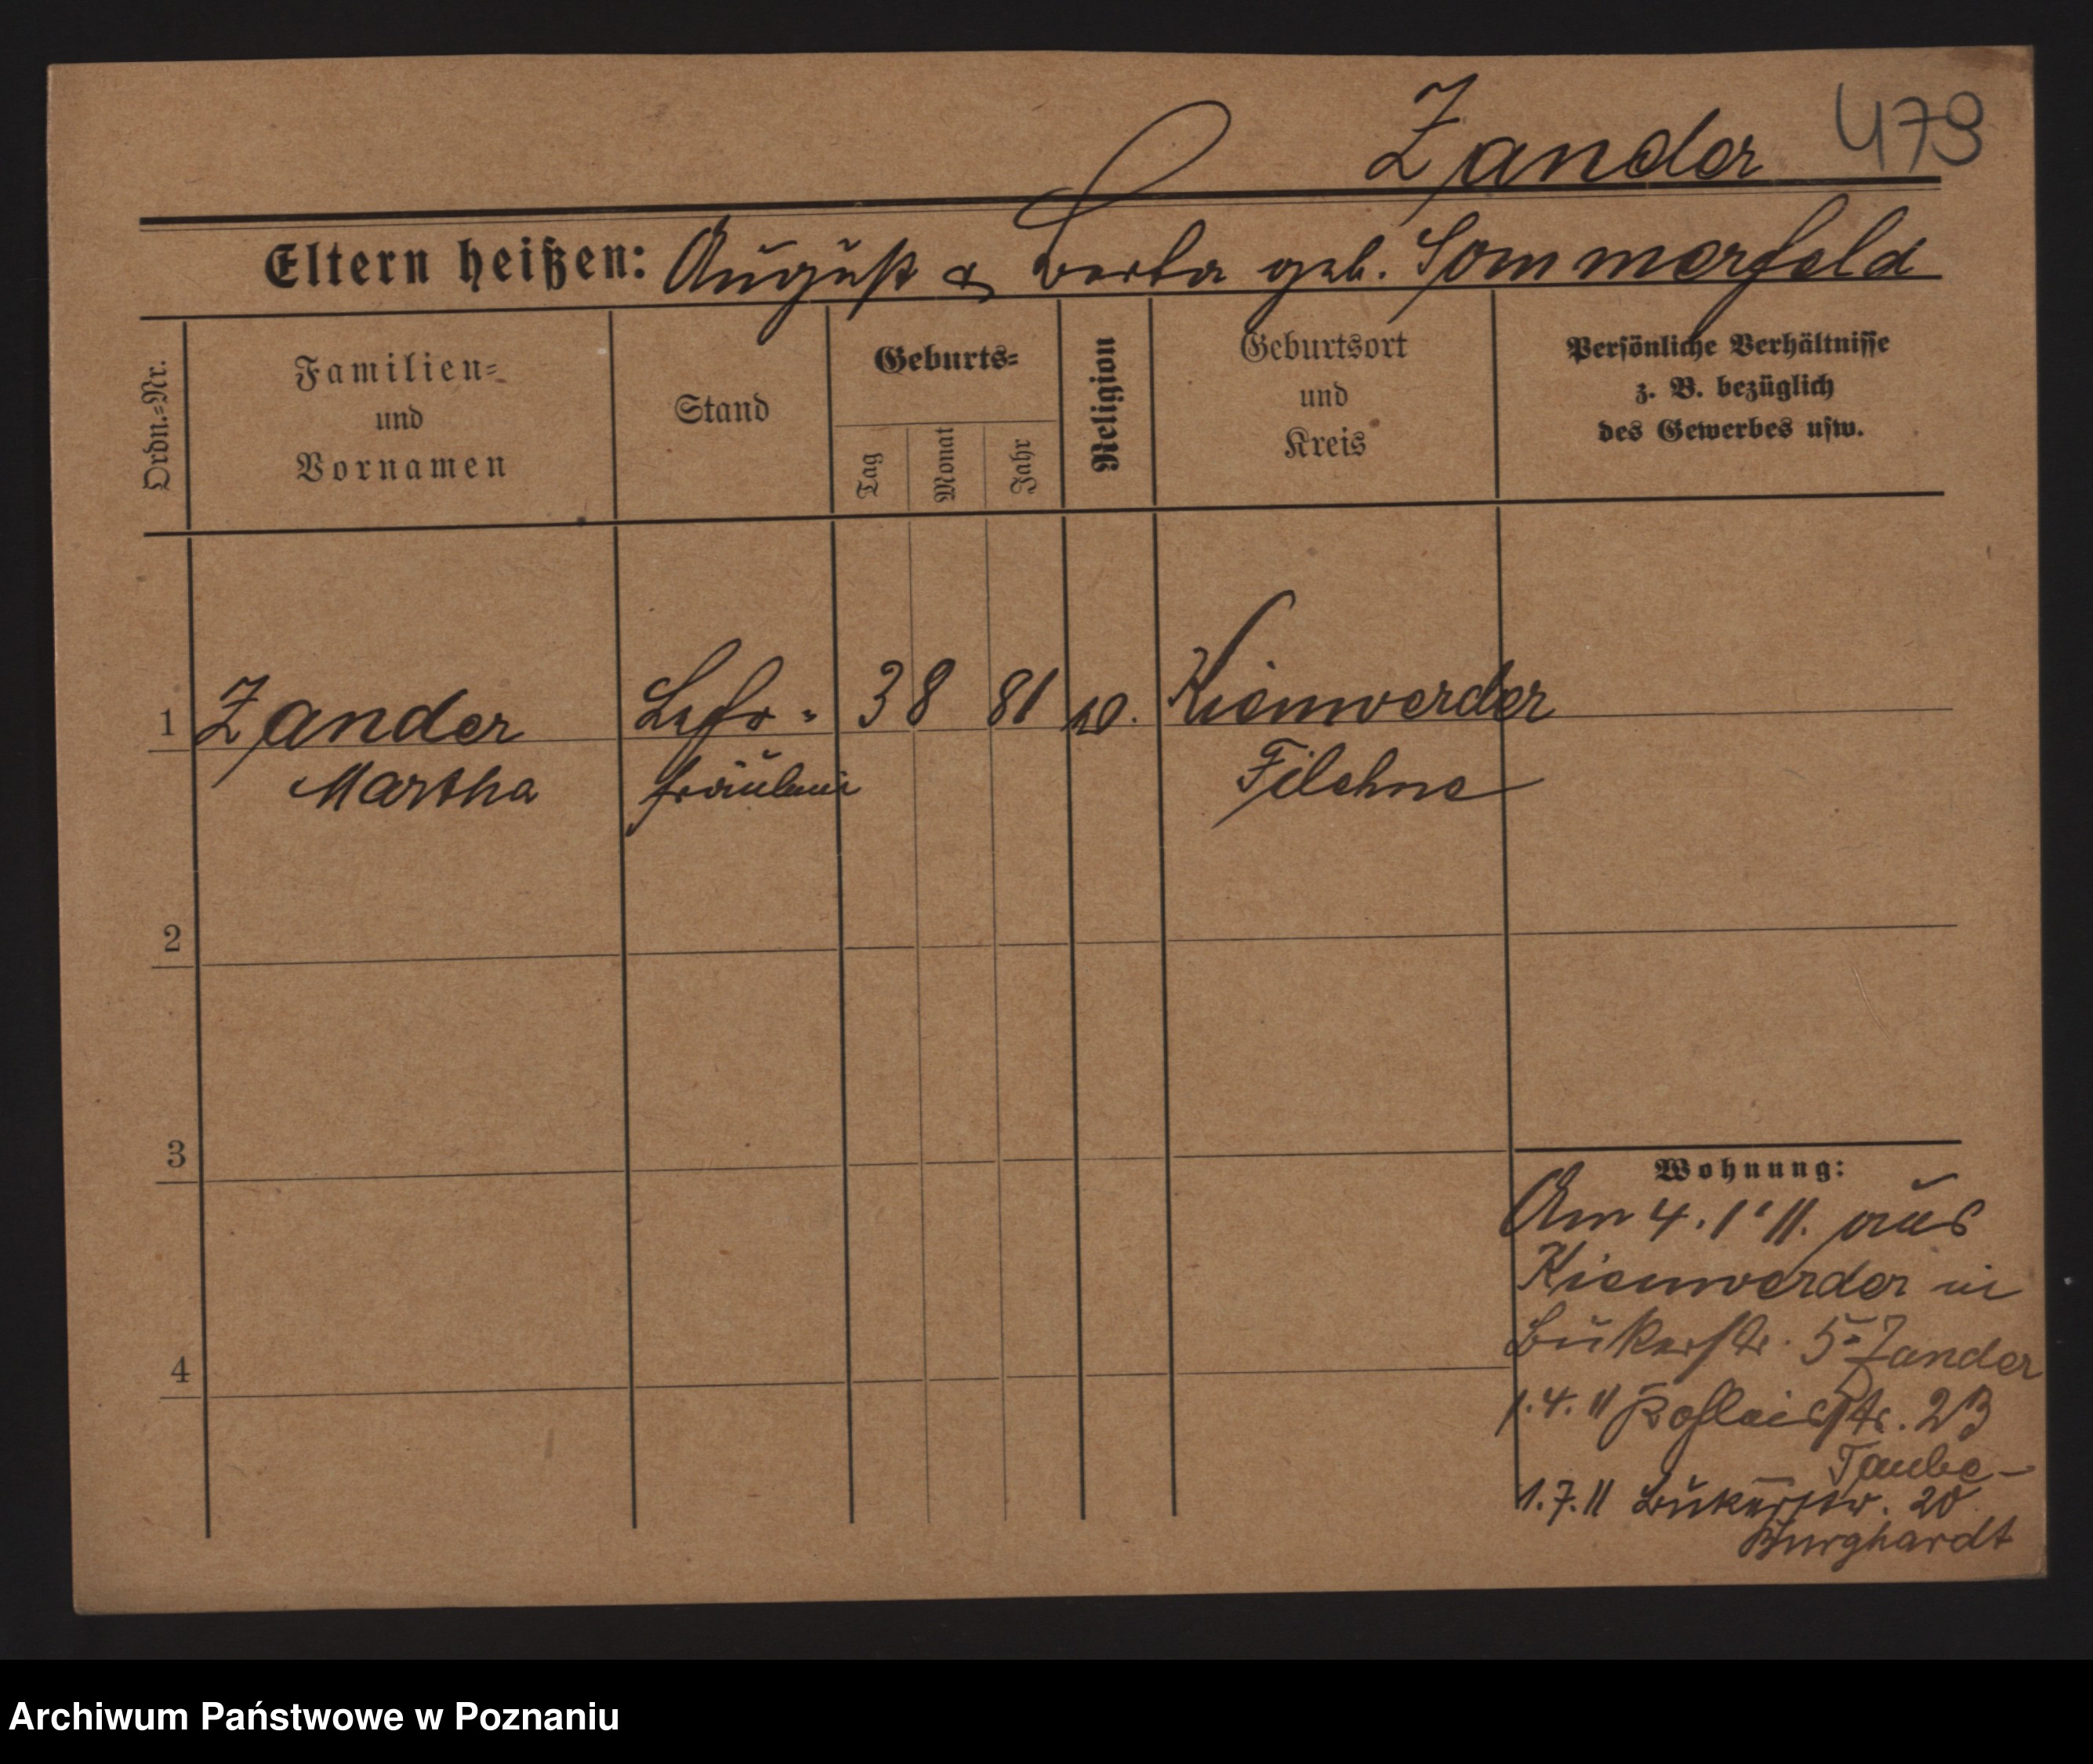 Zander 479
Eltern heißen: August & Berta geb. Sommerfeld
Ordn.=Nr.
Familien=
und
Vornamen
Stand
Geburts=
Tag
Monat
Jahr
Religion
Geburtsort
und
Kreis
Persönliche Verhältnisse
z. B. bezüglich
des Gewerbes usw.
1 Zander 3 8 81 Kienwerder
Martha fräulein Filehne
2
3
4
Wohnung:
Am 4. 1. 11. aus
Kienwerder in
Bukerstr. 5 Zander
1.4.11 23
Taube
1.7.11 Bukerstr. 20
Burghardt
Archiwum Państwowe w Poznaniu